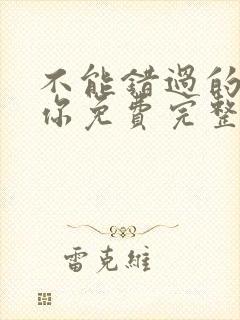 不能錯過的
你免費完整
雷克維